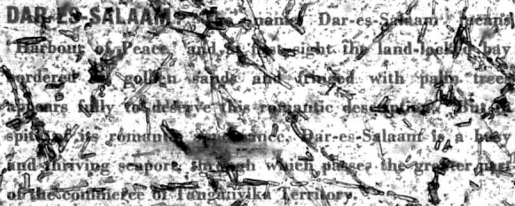 DAR-ES-SALAAM The name Dar-es-Salaam means
"Harbour of Peace," and at first sight the land-locked bay
bordered by golden sands and fringed with palm trees
appears fully to deserve this romantic description. But in
spite of its romantic appearance, Dar-es-Salaam is a busy
and thriving seaport, through which passes the greater part
of the commerce of Tanganyika Territory.